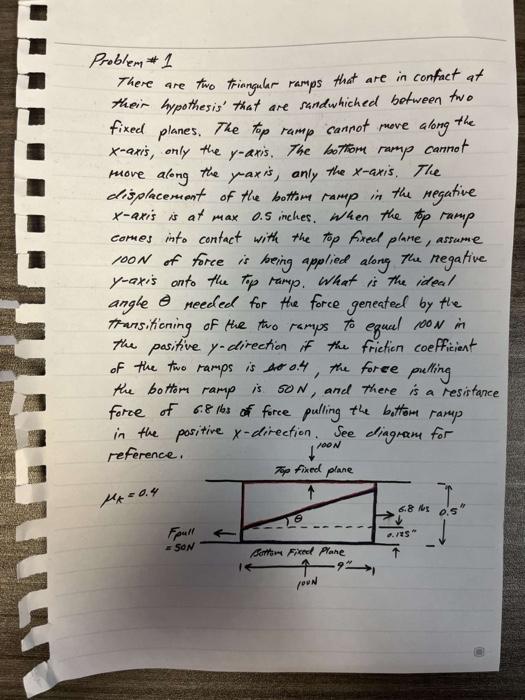 Problem # 1
There are two triangular ramps that are in contact at
their hypothesis' that are sandwhiched between two
fixed planes. The top ramp cannot move along the
x-axis, only the y-axis. The bottom ramp cannot
move along the y-axis, only the x-axis. The
displacement of the bottom ramp in the negative
x-axis is at max 0.5 inches. When the top ramp
comes into contact with the top fixed plane, assume
100N of force is being applied along the negative
y-axis onto the top ramp. What is the ideal
angle θ needed for the force geneated by the
transitioning of the two ramps to equal 100N in
the positive y-direction if the friction coefficient
of the two ramps is 0.4, the force pulling
the bottom ramp is 50N, and there is a resistance
force of 6.8 lbs of force pulling the bottom ramp
in the positive x-direction. See diagram for
reference.
↓ 100N
Top fixed plane
μk = 0.4
θ
6.8 lbs
0.5"
0.125"
Fpull
= 50N
Bottom Fixed Plane
9"
100N